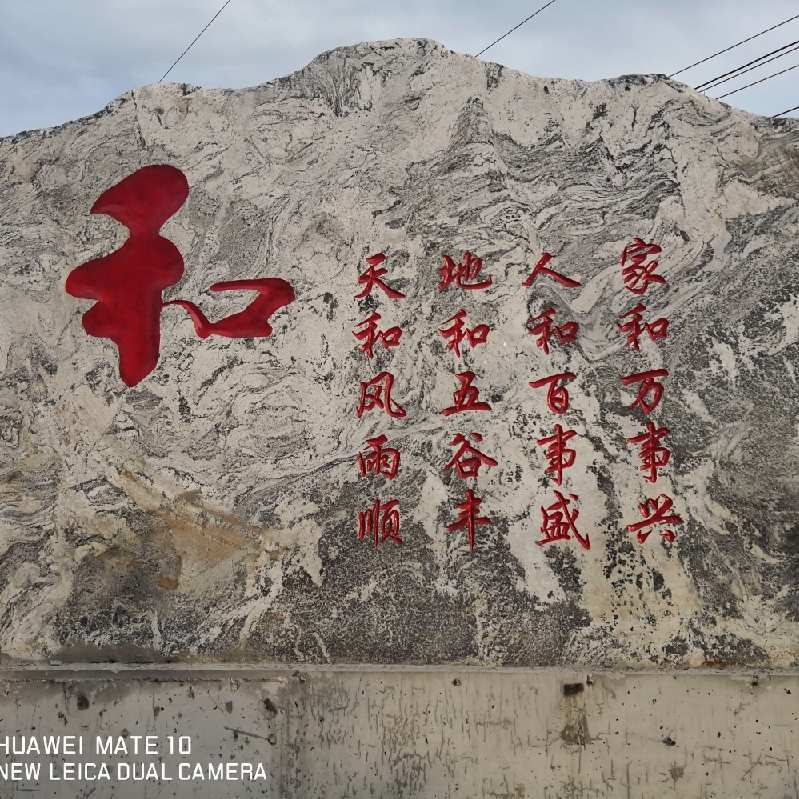 和
天和风雨顺
地和五谷丰
人和百事盛
家和万事兴
HUAWEI MATE 10
NEW LEICA DUAL CAMERA